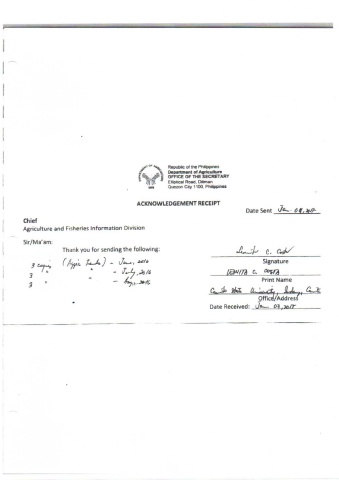 Republic of the Philippines
Department of Agriculture
OFFICE OF THE SECRETARY
Elliptical Road, Diliman
Quezon City 1100, Philippines
ACKNOWLEDGEMENT RECEIPT
Date Sent Jan.
Chief
Agriculture and Fisheries Information Division
Sir/Ma'am:
Thank you for sending the following:
3 copies - June, 2016
3 " " - July, 2016
3 " " 2016
Signature
LENITA C. COSTA
Print Name
State University, Cavite
Office/Address
Date Received: Jan